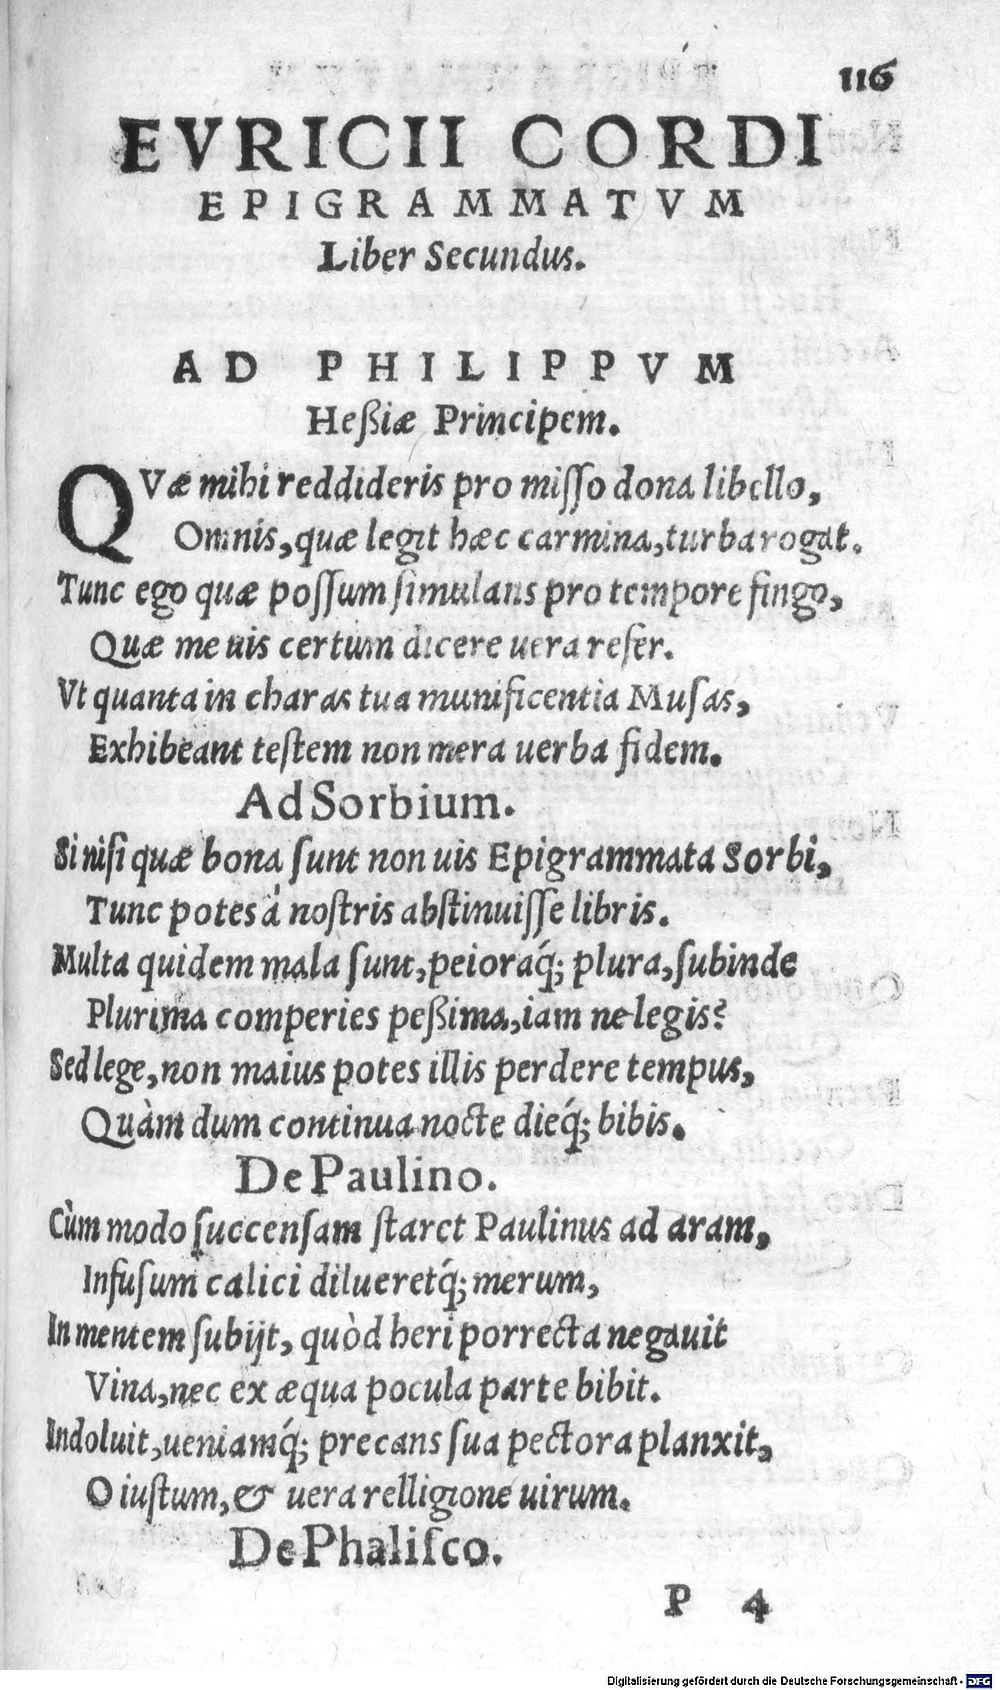 116
EVRICII CORDI
EPIGRAMMATVM
Liber Secundus.
AD PHILIPPVM
Heßiæ Principem.
QVæ mihi reddideris pro miſſo dona libello,
Omnis, quæ legit hæc carmina, turba rogat.
Tunc ego quæ poſſum ſimulans pro tempore fingo,
Quæ me uis certum dicere uera refer.
Vt quanta in charas tua munificentia Muſas,
Exhibeant teſtem non mera uerba fidem.
Ad Sorbium.
Si niſi quæ bona ſunt non uis Epigrammata Sorbi,
Tunc potes à noſtris abſtinuiſſe libris.
Multa quidem mala ſunt, peioraq́; plura, ſubinde
Plurima comperies peßima, iam ne legis?
Sed lege, non maius potes illis perdere tempus,
Quàm dum continua nocte dieq́; bibis.
De Paulino.
Cùm modo ſuccenſam ſtaret Paulinus ad aram,
Infuſum calici dilueretq́; merum,
In mentem ſubijt, quòd heri porrecta negauit
Vina, nec ex æqua pocula parte bibit.
Indoluit, ueniamq́; precans ſua pectora planxit,
O iuſtum, & uera relligione uirum.
De Phaliſco.
P 4
Digitalisierung gefördert durch die Deutsche Forschungsgemeinschaft - DFG